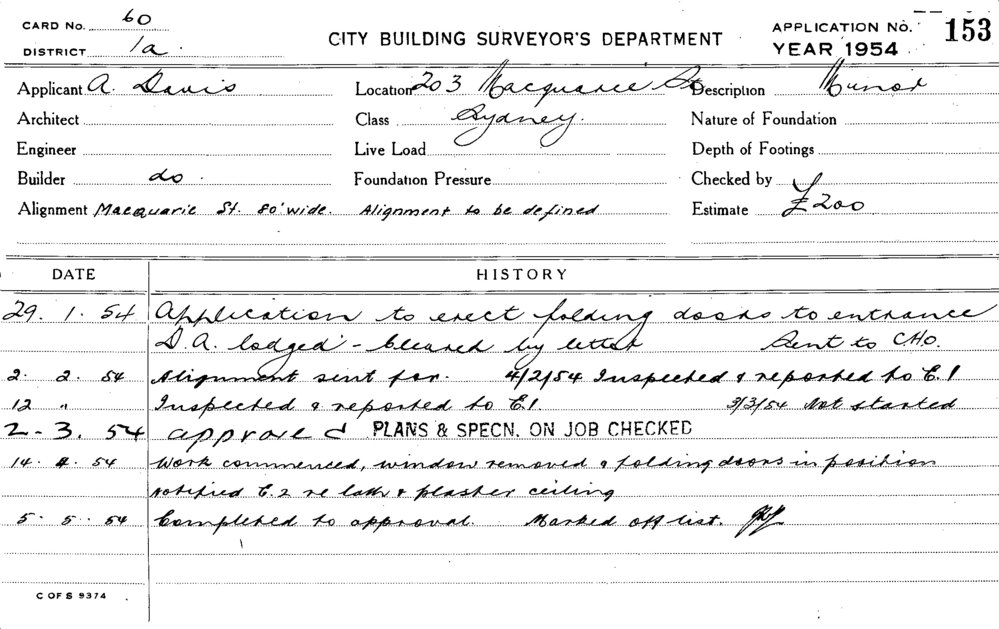 CARD No. 60
DISTRICT 1a.
CITY BUILDING SURVEYOR'S DEPARTMENT
APPLICATION No. 153
YEAR 1954
Applicant A. Davis Location 203 Macquarie St Description Minor
Architect Class Sydney. Nature of Foundation
Engineer Live Load Depth of Footings
Builder do. Foundation Pressure Checked by
Alignment Macquarie St. 80' wide. Alignment to be defined Estimate £200
DATE HISTORY
29. 1. 54 Application to erect folding doors to entrance
D.A. lodged - Cleared by letter Sent to C.H.O.
2. 2. 54 Alignment sent for. 4/2/54 Inspected & reported to E.1
12 " Inspected & reported to E.1. 3/3/54 Not started
2-3. 54 approved PLANS & SPECN. ON JOB CHECKED
14. 4. 54 Work commenced, window removed & folding doors in position
notified E.2 re lath & plaster ceiling
5. 5. 54 Completed to approval. Marked off list.
C OF S 9374